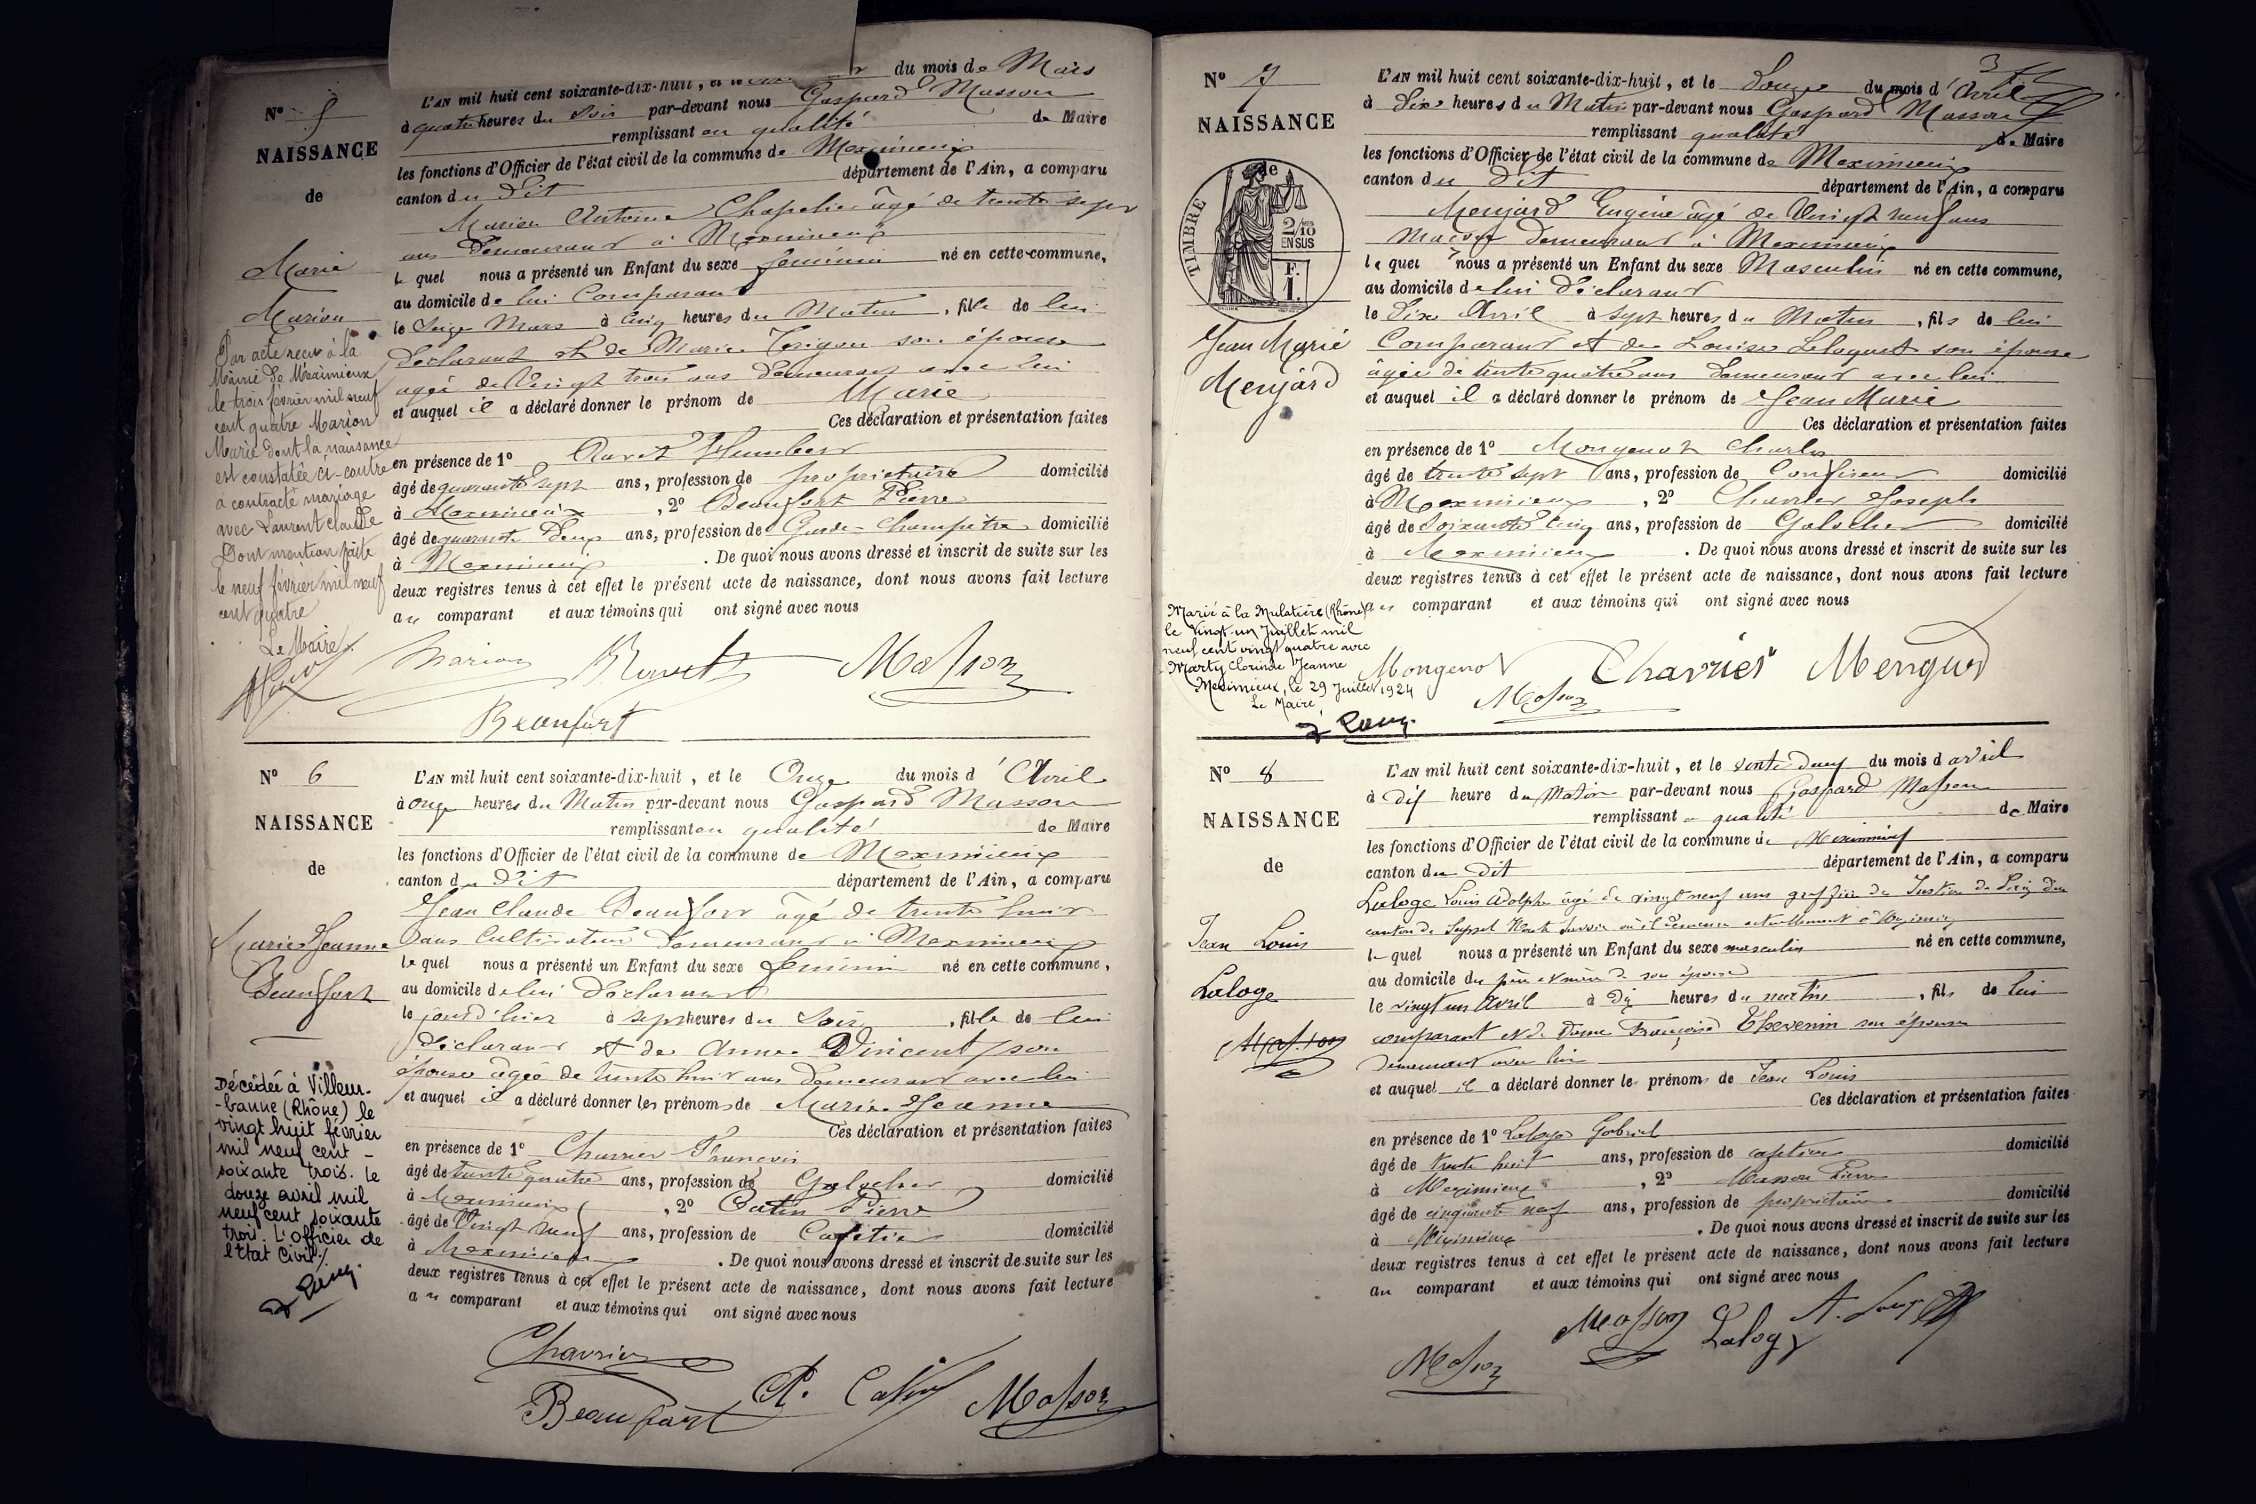 N° 5
NAISSANCE
de
Marie
Marion
Par acte reçu à la
Mairie de Meximieux
le trois février mil neuf
cent quatre Marion
Marie dont la naissance
est constatée ci-contre
a contracté mariage
avec Laurent Claude
Dont mention faite
le neuf février mil neuf
cent quatre
Le Maire
L'AN mil huit cent soixante-dix-huit, et le du mois de Mars
à quatre heures du Soir par-devant nous Gaspard Masson
remplissant en qualité de Maire
les fonctions d'Officier de l'état civil de la commune de Meximieux
canton du Dit département de l'Ain, a comparu
Marion Antoine Chapelier âgé de trente sept
ans demeurant à Meximieux
le quel nous a présenté un Enfant du sexe féminin né en cette commune,
au domicile de lui Comparant
le Seize Mars à Cinq heures du Matin, fille de lui
déclarant et de Marie son épouse
agée de Veingt trois ans demeurant avec lui
et auquel il a déclaré donner le prénom de Marie
Ces déclaration et présentation faites
en présence de 1° Humbert
âgé de quarante sept ans, profession de propriétaire domicilié
à Meximieux, 2° Beaufort Pierre
âgé de quarante Deux ans, profession de Garde-Champêtre domicilié
à Meximieux. De quoi nous avons dressé et inscrit de suite sur les
deux registres tenus à cet effet le présent acte de naissance, dont nous avons fait lecture
au comparant et aux témoins qui ont signé avec nous
Marion Masson
Beaufort
N° 6
NAISSANCE
de
Marie Jeanne
Beaufort
Décédée à Villeur-
-banne (Rhône) le
vingt huit février
mil neuf cent -
soixante trois. le
douze avril mil
neuf cent soixante
trois. L'officier de
l'Etat Civil./.
L'AN mil huit cent soixante-dix-huit, et le Onze du mois d'Avril
à onze heures du Matin par-devant nous Gaspard Masson
remplissant en qualité de Maire
les fonctions d'Officier de l'état civil de la commune de Meximieux
canton du Dit département de l'Ain, a comparu
Jean Claude Beaufort âgé de trente huit
ans Cultivateur demeurant à Meximieux
le quel nous a présenté un Enfant du sexe féminin né en cette commune,
au domicile de lui Déclarant
le jourd'hier à sept heures du Soir, fille de lui
déclarant et de Anne Vincent son
épouse agée de trente huit ans demeurant avec lui
et auquel il a déclaré donner les prénoms de Marie Jeanne
Ces déclaration et présentation faites
en présence de 1° Charrier François
âgé de trente quatre ans, profession de Galocher domicilié
à Meximieux, 2° Catin Pierre
âgé de Vingt neuf ans, profession de Cafetier domicilié
à Meximieux. De quoi nous avons dressé et inscrit de suite sur les
deux registres tenus à cet effet le présent acte de naissance, dont nous avons fait lecture
au comparant et aux témoins qui ont signé avec nous
Charrier
Beaufort P. Catin Masson
3
N° 7
NAISSANCE
de
TIMBRE
2/10
EN SUS
F.
1.
Jean Marie
Menjard
Marié à la Mulatière (Rhône)
le vingt-un Juillet mil
neuf cent vingt quatre avec
Marty Clorinde Jeanne
Meximieux, le 29 Juillet 1924
Le Maire,
L'AN mil huit cent soixante-dix-huit, et le Douze du mois d'Avril
à Dix heures du Matin par-devant nous Gaspard Masson
remplissant qualité de Maire
les fonctions d'Officier de l'état civil de la commune de Meximieux
canton du Dit département de l'Ain, a comparu
Menjard Eugène âgé de Vingt neuf ans
Maçon demeurant à Meximieux
le quel nous a présenté un Enfant du sexe Masculin né en cette commune,
au domicile de lui Déclarant
le Dix Avril à sept heures du Matin, fils de lui
Comparant et de Louise son épouse
âgée de trente quatre ans demeurant avec lui
et auquel il a déclaré donner le prénom de Jean Marie
Ces déclaration et présentation faites
en présence de 1° Mongenot Charles
âgé de trente sept ans, profession de Confiseur domicilié
à Meximieux, 2° Charrier Joseph
âgé de Soixante Cinq ans, profession de Galocher domicilié
à Meximieux. De quoi nous avons dressé et inscrit de suite sur les
deux registres tenus à cet effet le présent acte de naissance, dont nous avons fait lecture
au comparant et aux témoins qui ont signé avec nous
Mongenot Charrier Menjard
Masson
N° 8
NAISSANCE
de
Jean Louis
Laloge
Masson
L'AN mil huit cent soixante-dix-huit, et le vente deux du mois d avril
à dix heure du Matin par-devant nous Gaspard Masson
remplissant en qualité de Maire
les fonctions d'Officier de l'état civil de la commune de Meximieux
canton du dit département de l'Ain, a comparu
Laloge Louis Adolphe âgé de vingt neuf ans greffier de Justice de Paix du
canton de Seyssel Haute Savoie où il demeure actuellement à Meximieux
le quel nous a présenté un Enfant du sexe masculin né en cette commune,
au domicile du père et mère de son épouse
le vingt un avril à dix heures du matin, fils de lui
comparant et de Dame Françoise Thevenin son épouse
demeurant avec lui
et auquel il a déclaré donner les prénoms de Jean Louis
Ces déclaration et présentation faites
en présence de 1° Laloge Gabriel
âgé de trente huit ans, profession de domicilié
à Meximieux, 2° Masson Pierre
âgé de cinquante neuf ans, profession de propriétaire domicilié
à Meximieux. De quoi nous avons dressé et inscrit de suite sur les
deux registres tenus à cet effet le présent acte de naissance, dont nous avons fait lecture
au comparant et aux témoins qui ont signé avec nous
Masson Laloge
Masson